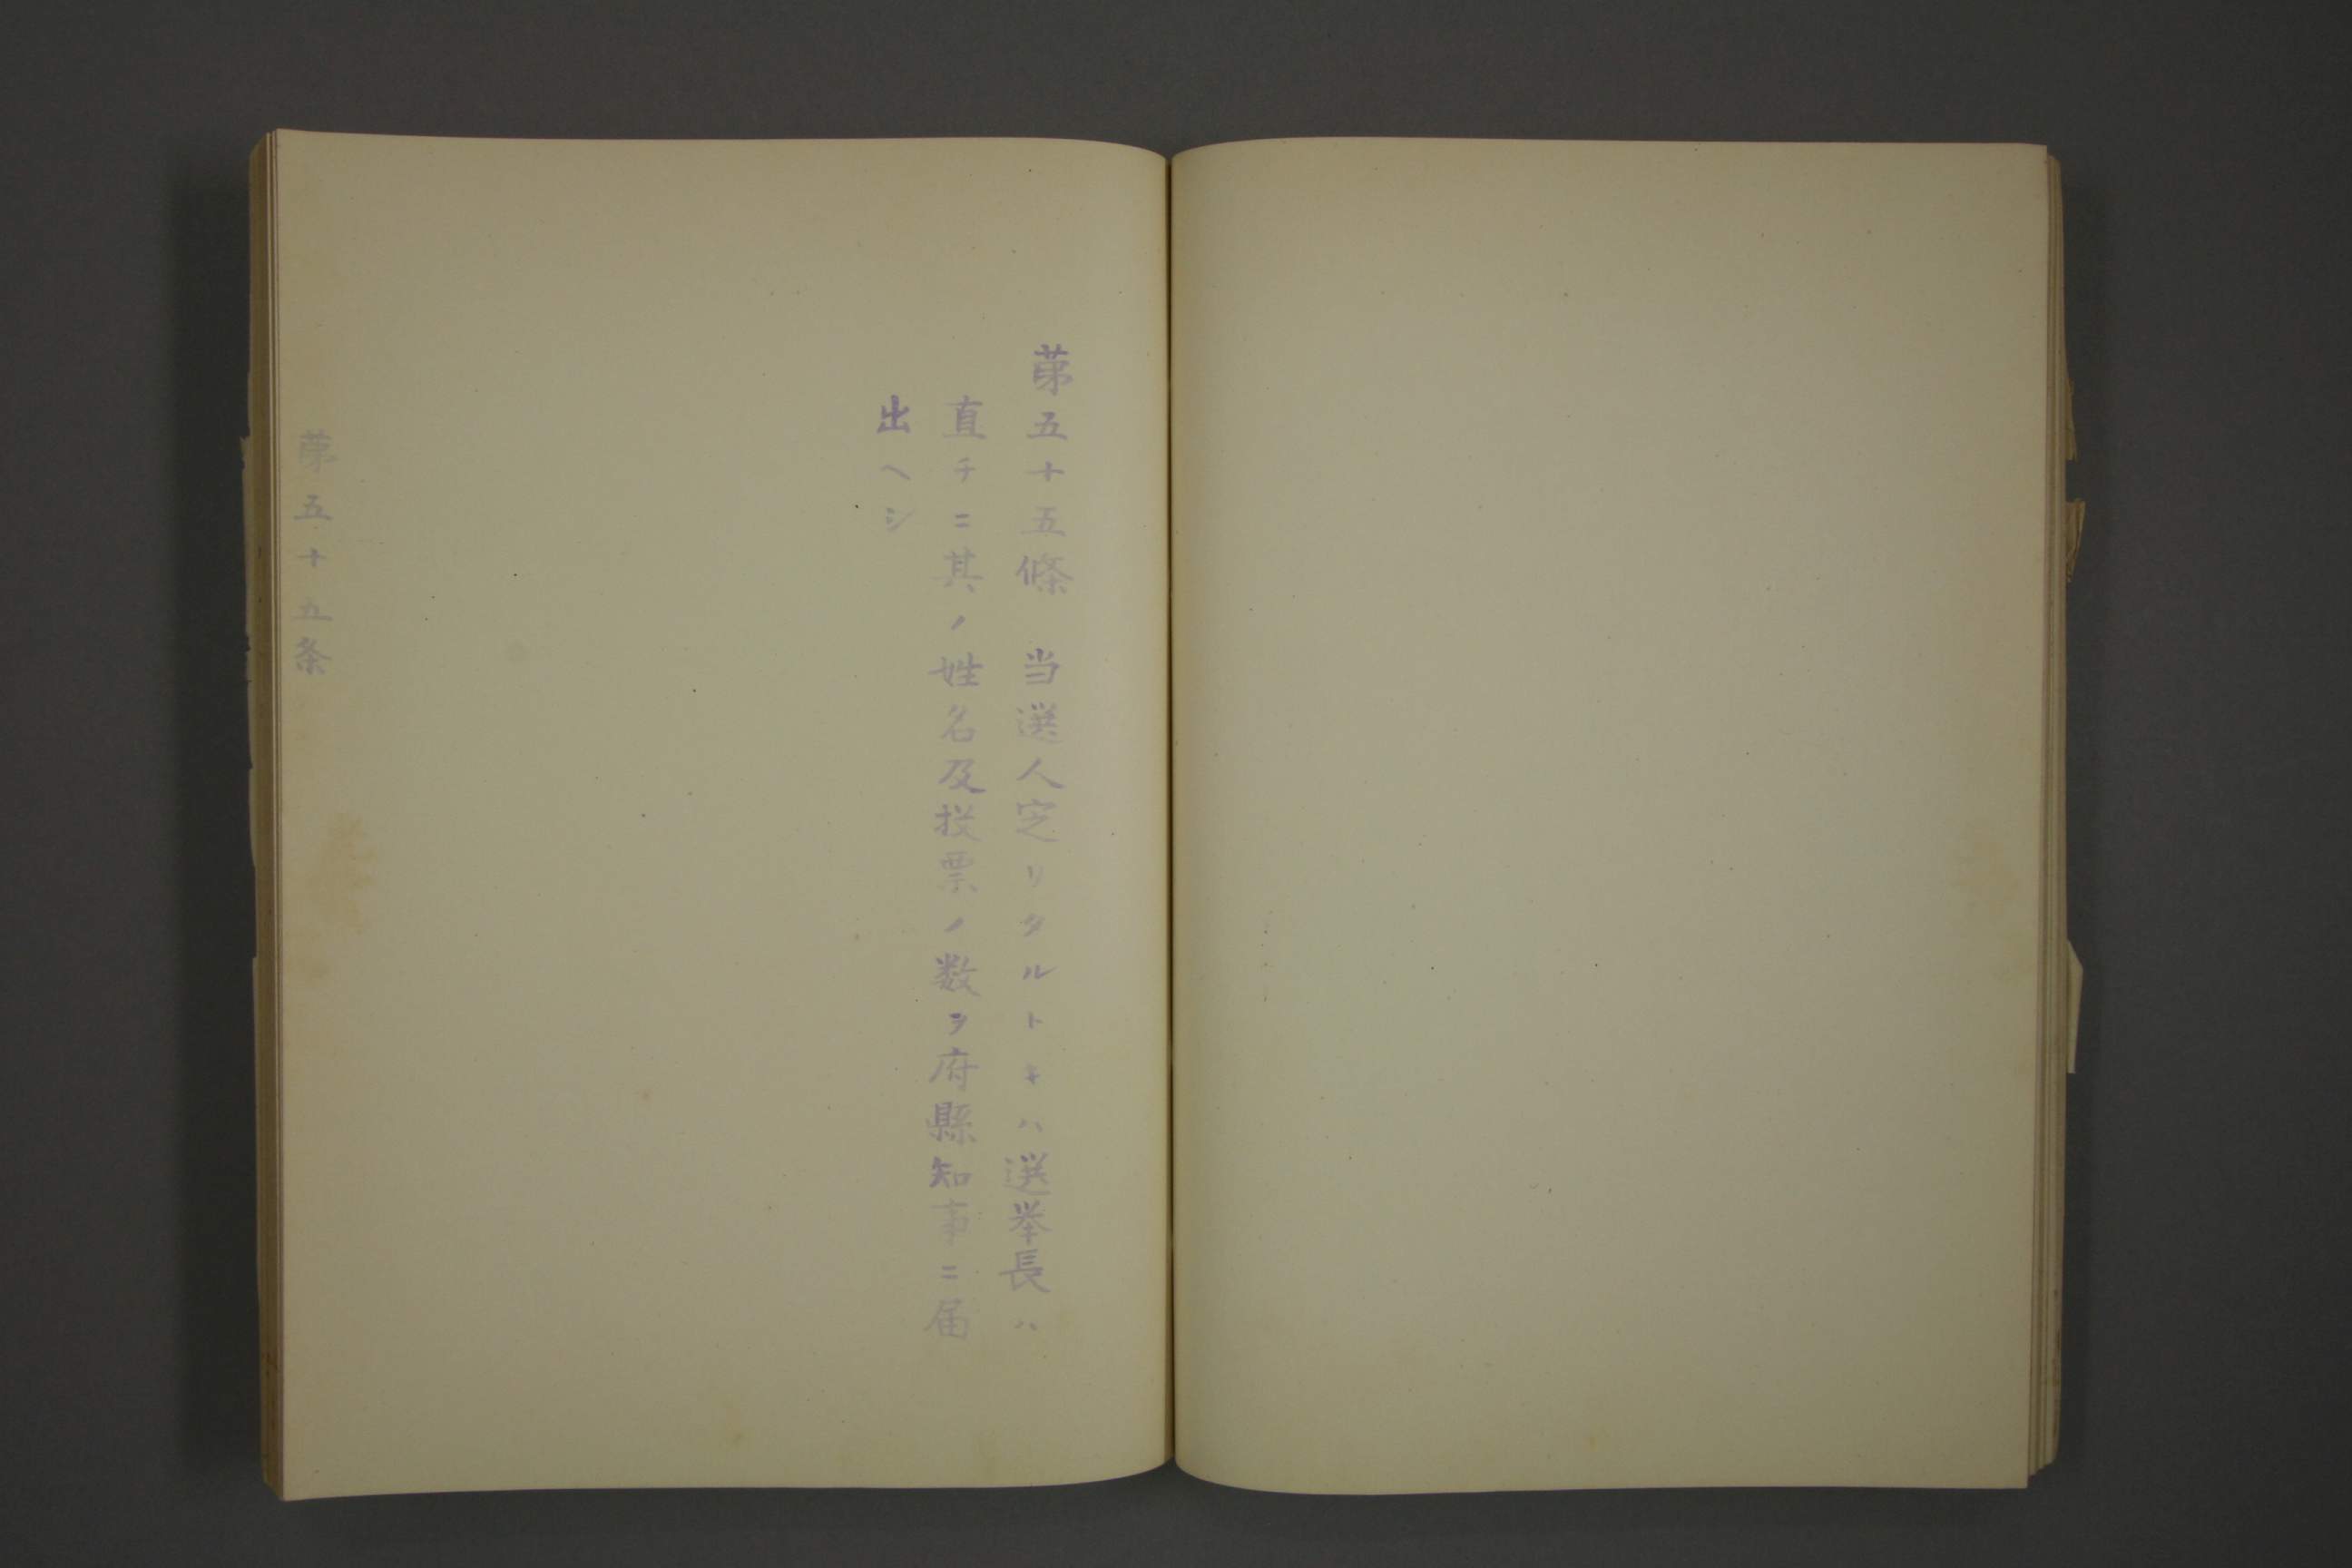 第五十五條　当選人定リタルトキハ選挙長ハ
直チニ其ノ姓名及投票ノ数ヲ府縣知事ニ届
出ヘシ
第五十五条